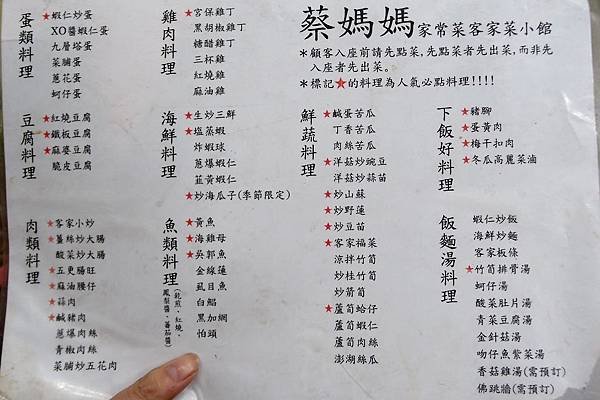 蔡媽媽家常菜客家菜小館
*顧客入座前請先點菜,先點菜者先出菜,而非先
入座者先出菜。
*標記★的料理為人氣必點料理!!!!
蛋類料理
★蝦仁炒蛋
XO醬蝦仁蛋
九層塔蛋
菜脯蛋
蔥花蛋
蚵仔蛋
雞肉料理
★宮保雞丁
黑胡椒雞丁
糖醋雞丁
三杯雞
紅燒雞
麻油雞
豆腐料理
★紅燒豆腐
★鐵板豆腐
★麻婆豆腐
脆皮豆腐
海鮮料理
★生炒三鮮
★塩蒸蝦
炸蝦球
蔥爆蝦仁
韮黃蝦仁
★炒海瓜子(季節限定)
鮮蔬料理
★鹹蛋苦瓜
丁香苦瓜
肉絲苦瓜
★洋菇炒豌豆
洋菇炒蒜苗
★炒山蘇
★炒野蓮
★炒豆苗
★客家福菜
涼拌竹筍
炒桂竹筍
炒箭筍
★蘆筍蛤仔
蘆筍蝦仁
蘆筍肉絲
澎湖絲瓜
下飯好料理
★豬腳
★蛋黃肉
★梅干扣肉
★冬瓜高麗菜滷
肉類料理
★客家小炒
★薑絲炒大腸
酸菜炒大腸
★五更腸旺
★麻油腰仔
★蒜肉
★鹹豬肉
蔥爆肉絲
青椒肉絲
菜脯炒五花肉
魚類料理
(乾煎、紅燒、鳳梨醬、蕃茄醬)
★黃魚
★海雞母
★吳郭魚
金線蓮
虱目魚
白鯧
黑加網
怕頭
飯麵湯料理
蝦仁炒飯
海鮮炒麵
客家板條
★竹筍排骨湯
蚵仔湯
酸菜肚片湯
青菜豆腐湯
金針菇湯
吻仔魚紫菜湯
香菇雞湯(需預訂)
佛跳牆(需預訂)